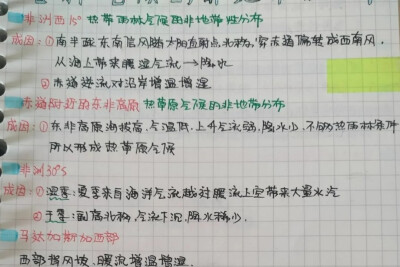 非洲西15° 热带雨林气候的非地带性分布
成因：①南半球东南信风随太阳直射点北移，穿赤道偏转成西南风，
从海上带来暖湿气流→降水
②赤道暖流对沿岸增温增湿
赤道附近的东非高原 热带草原气候的非地带分布
成因：①东非高原海拔高，气温低，上升气流弱，降水少，不够热雨林条件
所以形成热带草原气候
非洲30°S
成因：①湿季：夏季来自海洋气流越过暖流上空带来大量水汽
②干季：副高北移，气流下沉，降水稀少。
马达加斯加西部
西部背风坡，暖流增温增湿